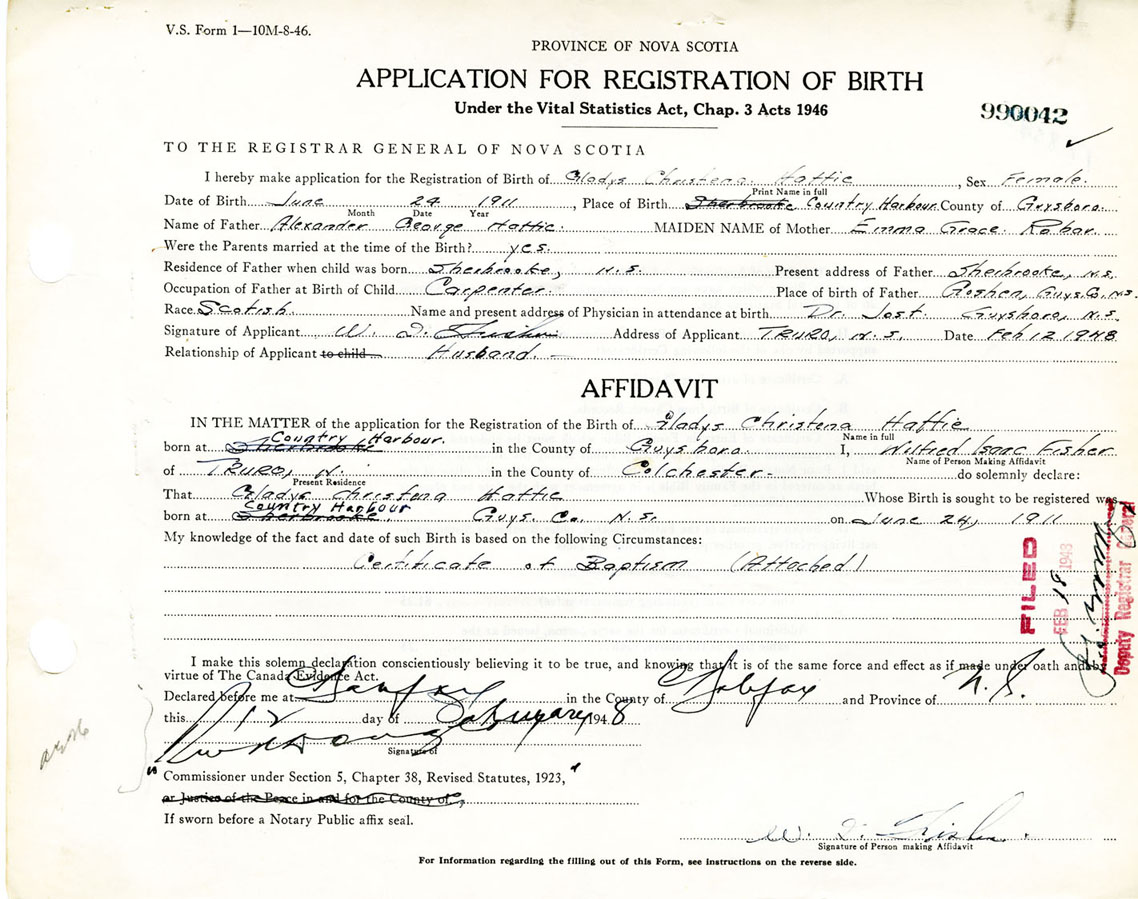 V.S. Form 1—10M-8-46.
PROVINCE OF NOVA SCOTIA
APPLICATION FOR REGISTRATION OF BIRTH
Under the Vital Statistics Act, Chap. 3 Acts 1946
990042
TO THE REGISTRAR GENERAL OF NOVA SCOTIA
I hereby make application for the Registration of Birth of Gladys Christena Hattie, Sex Female.
Print Name in full
Date of Birth June 24 1911, Place of Birth Sherbrooke Country Harbour County of Guysboro.
Month Date Year
Name of Father Alexander George Hattie. MAIDEN NAME of Mother Emma Grace Rahar.
Were the Parents married at the time of the Birth? yes.
Residence of Father when child was born Sherbrooke, N.S. Present address of Father Sherbrooke, N.S.
Occupation of Father at Birth of Child Carpenter. Place of birth of Father Goshen, Guys. Co. N.S.
Race Scotish. Name and present address of Physician in attendance at birth Dr. Jost. Guysboro, N.S.
Signature of Applicant W. I. Fisher Address of Applicant TRURO, N.S. Date Feb 12 1948
Relationship of Applicant to child Husband.
AFFIDAVIT
IN THE MATTER of the application for the Registration of the Birth of Gladys Christena Hattie
Name in full
Country Harbour.
born at Sherbrooke in the County of Guysboro. I, Wilfred Isaac Fisher
Name of Person Making Affidavit
of TRURO, N. in the County of Colchester. do solemnly declare:
Present Residence
That Gladys Christena Hattie Whose Birth is sought to be registered was
Country Harbour
born at Sherbrooke. Guys. Co. N.S. on June 24, 1911
My knowledge of the fact and date of such Birth is based on the following Circumstances:
Certificate of Baptism (Attached)
FILED
FEB 18 1948
Deputy Registrar General
I make this solemn declaration conscientiously believing it to be true, and knowing that it is of the same force and effect as if made under oath and by
virtue of The Canada Evidence Act.
Declared before me at Halifax in the County of Halifax and Province of N.S.
this 12 day of February 1948
Signature of
"Commissioner under Section 5, Chapter 38, Revised Statutes, 1923,"
or Justice of the Peace in and for the County of
If sworn before a Notary Public affix seal.
W. I. Fisher.
Signature of Person making Affidavit
For Information regarding the filling out of this Form, see instructions on the reverse side.